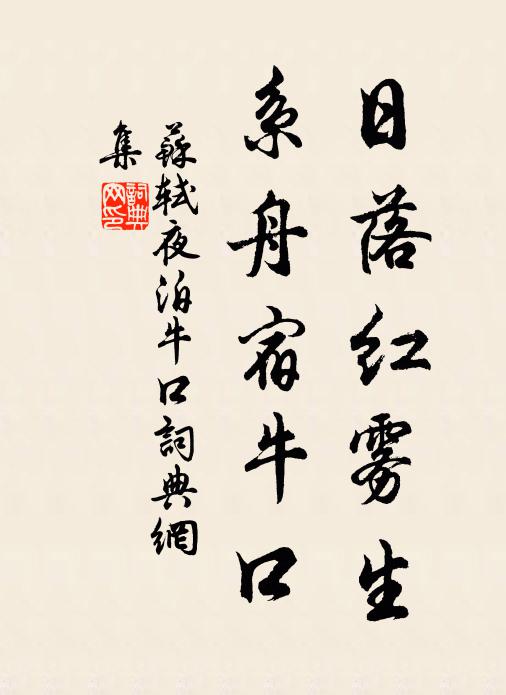 日落红雾生
系舟宿牛口
蘇軾夜泊牛口詞典網
集
詞典
网印